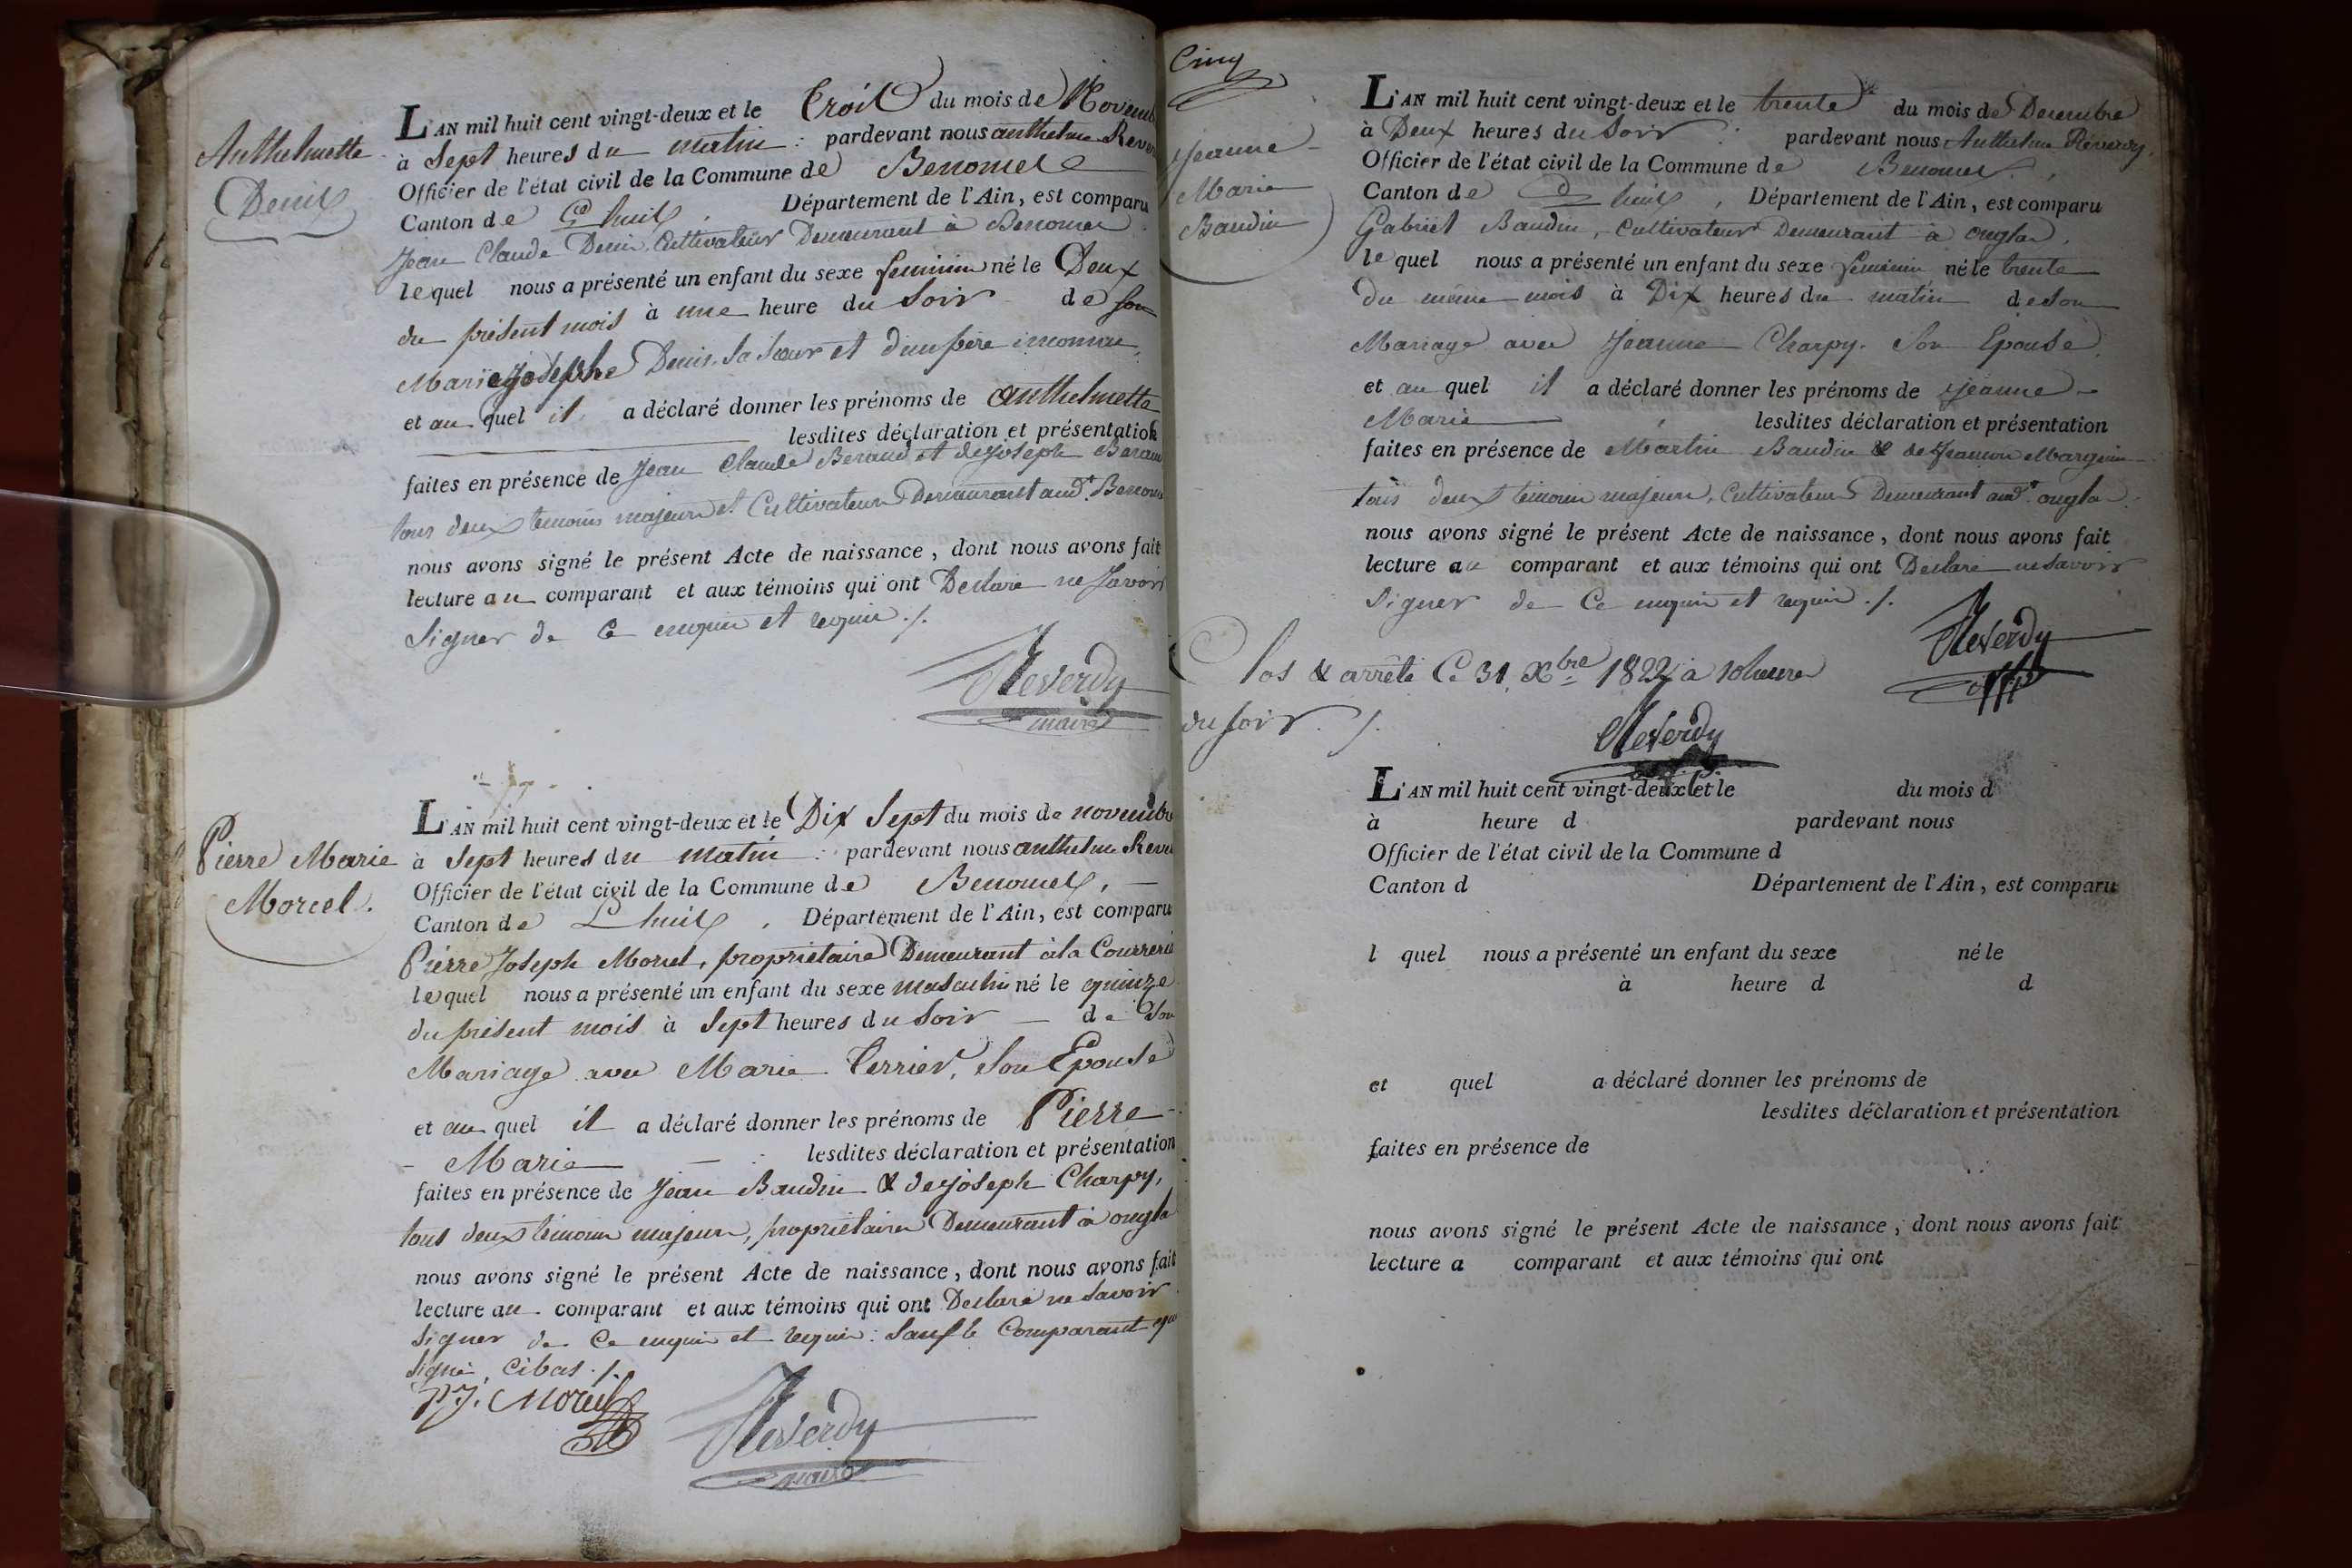 Anthelmette
Denis
L'AN mil huit cent vingt-deux et le Trois du mois de Novemb
à Sept heures du matin : pardevant nous anthelme Rever
Officier de l'état civil de la Commune de Benonces
Canton de Lhuis, Département de l'Ain, est comparu
Jean Claude Denis, Cultivateur Demeurant à Benonces
lequel nous a présenté un enfant du sexe feminin né le Deux
du présent mois à une heure du Soir de son
Marie josephe Denis, Sa Sœur et d'un père inconnu,
et au quel il a déclaré donner les prénoms de anthelmette
lesdites déclaration et présentation
faites en présence de Jean Claude Beraud et de joseph Beraud
tous deux temoins majeurs et Cultivateurs Demeurant aud.t Benonc
nous avons signé le présent Acte de naissance, dont nous avons fait
lecture au comparant et aux témoins qui ont Declaré ne Savoir
Signer de Ce enquis et requis ./.
Reverdy
maire
Pierre Marie
Morcel.
L'AN mil huit cent vingt-deux et le Dix Sept du mois de novembre
à Sept heures du matin : pardevant nous anthelme Reve
Officier de l'état civil de la Commune de Benonces, —
Canton de Lhuis, Département de l'Ain, est comparu
Pierre Joseph Morcel, propriétaire Demeurant à la Courrerie
lequel nous a présenté un enfant du sexe masculin né le quinze
du présent mois à Sept heures du Soir — de Son
Mariage avec Marie Terrier, Son Epouse
et au quel il a déclaré donner les prénoms de Pierre -
- Marie — lesdites déclaration et présentation
faites en présence de Jean Baudin & de joseph Charpy,
tous deux temoins majeurs, propriétaires Demeurant à ongla
nous avons signé le présent Acte de naissance, dont nous avons fait
lecture au comparant et aux témoins qui ont Declaré ne Savoir
Signer de Ce enquis et requis : Sauf le Comparant qui
Signé, Cibas ./.
P J. Morcel
Reverdy
maire
Cinq
Jeanne -
Marie
Baudin
L'AN mil huit cent vingt-deux et le trente du mois de Decembre
à Deux heures du Soir : pardevant nous Anthelme Réverdy,
Officier de l'état civil de la Commune de Benonces,
Canton de Lhuis, Département de l'Ain, est comparu
Gabriel Baudin, Cultivateur Demeurant à onglas,
lequel nous a présenté un enfant du sexe feminin né le trente
du même mois à Dix heures du matin de Son
Mariage avec Jeanne Charpy. Son Epouse
et au quel il a déclaré donner les prénoms de Jeanne -
Marie — lesdites déclaration et présentation
faites en présence de Martin Baudin & de
tous deux temoins majeurs, Cultivateurs Demeurant aud.t ongla
nous avons signé le présent Acte de naissance, dont nous avons fait
lecture au comparant et aux témoins qui ont Declaré ne Savoir
Signer de Ce enquis et requis ./.
Reverdy
Clos & arrêté Ce 31 Xbre 1822 à 10 heures
du soir ./.
Reverdy
L'AN mil huit cent vingt-deux et le du mois d
à heure d pardevant nous
Officier de l'état civil de la Commune d
Canton d Département de l'Ain, est comparu
l quel nous a présenté un enfant du sexe né le
à heure d d
et quel a déclaré donner les prénoms de
lesdites déclaration et présentation
faites en présence de
nous avons signé le présent Acte de naissance, dont nous avons fait
lecture a comparant et aux témoins qui ont